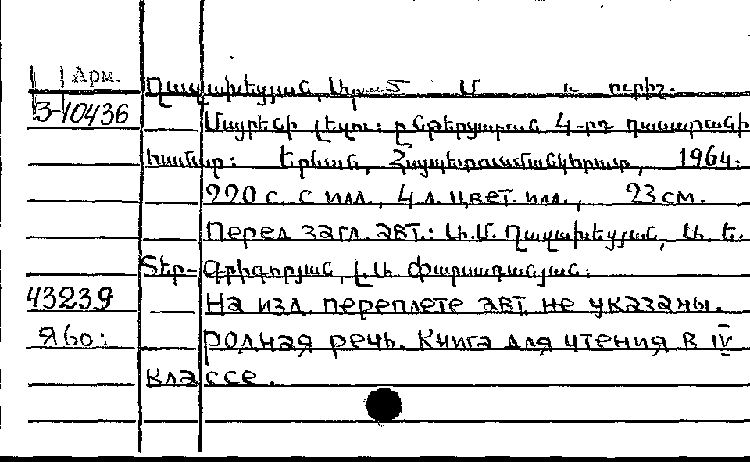 Арм.
Ղազախեցյան, Արամ Մ և ուրիշ.
3-10436
Մայրենի լեզու: ընթերցարան 4-րդ դասարանի
համար: Երևան, Հայպետուսմանկհրատ, 1964.
220 с. с илл., 4 л. цвет. илл., 23 см.
Перед загл. авт.: Ա.Մ. Ղազախեցյան, Ա. Ե.
Տեր-Գրիգորյան, Լ.Ա. Փարսադանյան.
43239 На изд. переплете авт. не указаны.
Яво: Родная речь. Книга для чтения в IV
классе.